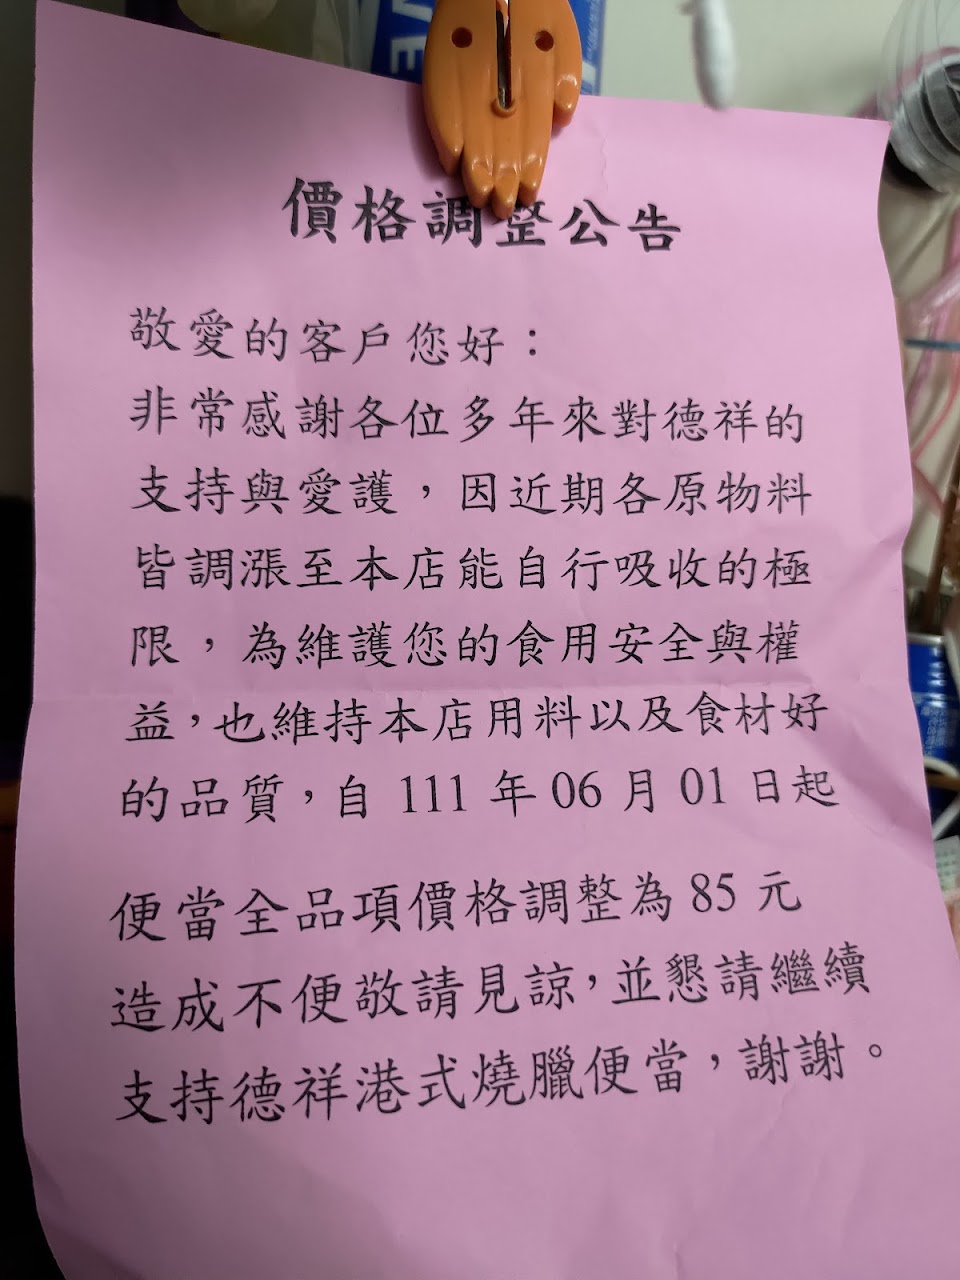 價格調整公告
敬愛的客戶您好：
非常感謝各位多年來對德祥的
支持與愛護，因近期各原物料
皆調漲至本店能自行吸收的極
限，為維護您的食用安全與權
益，也維持本店用料以及食材好
的品質，自 111 年 06 月 01 日起
便當全品項價格調整為 85 元
造成不便敬請見諒，並懇請繼續
支持德祥港式燒臘便當，謝謝。